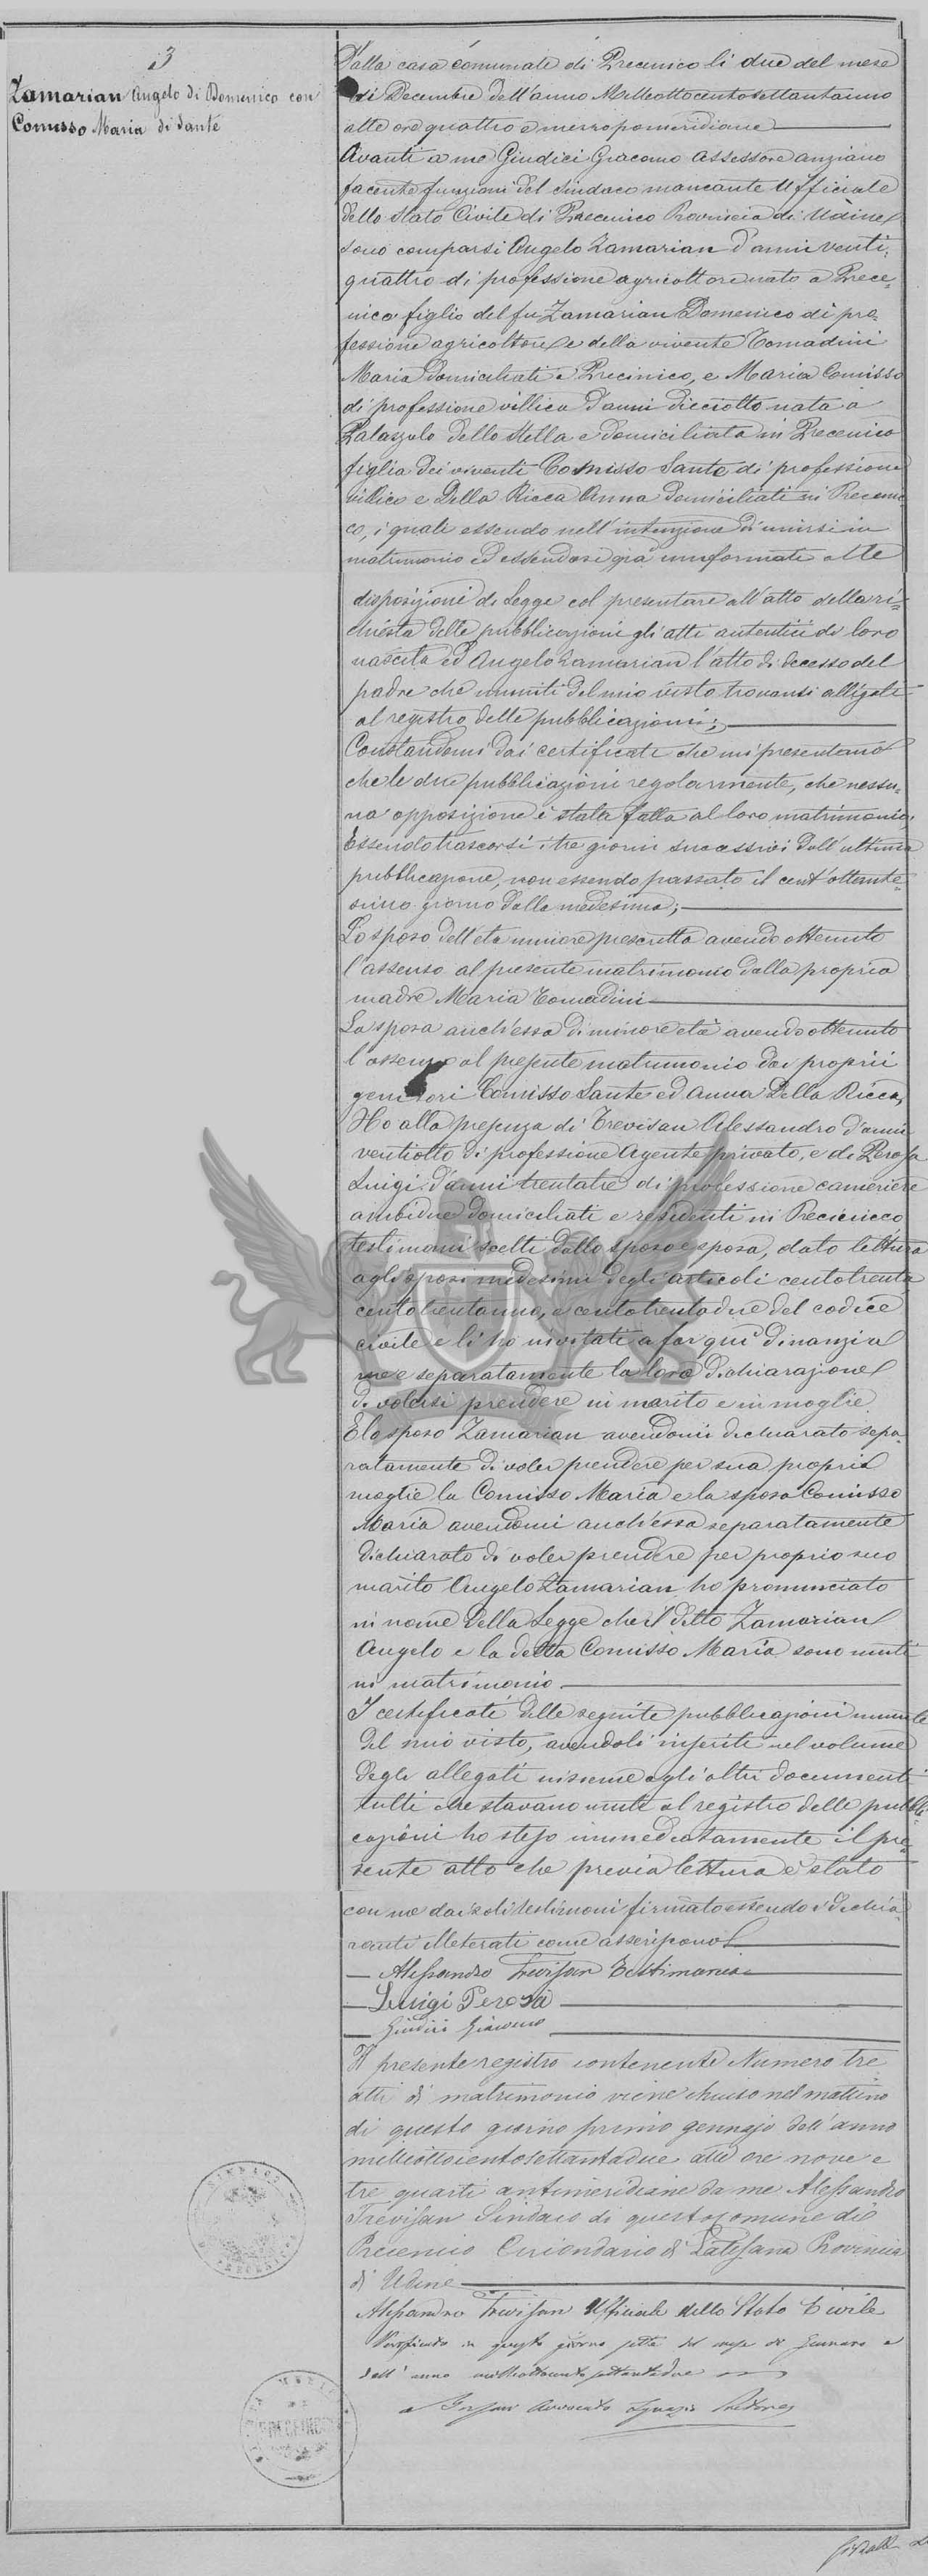 3
Zamarian Angelo di Domenico con
Comisso Maria di Sante
Dalla casa comunale di Precenico li due del mese
di Decembre dell'anno Milleottocentosettantauno
alle ore quattro e mezzo pomeridiane
Avanti a me Giudici Giacomo Assessore anziano
facente funzioni del Sindaco mancante Ufficiale
dello Stato Civile di Precenico Provincia di Udine
sono comparsi Angelo Zamarian d'anni venti,
quattro di professione agricoltore nato a Prece-
nico figlio del fu Zamarian Domenico di pro-
fessione agricoltore e della vivente Tomadini
Maria domiciliati a Precinico, e Maria Comisso
di professione villica d'anni dicciotto nata a
Palazzolo dello Stella e domiciliata in Precenico
figlia dei viventi Comisso Sante di professione
villico e Della Ricca Anna domiciliati in Preceni-
co, i quali essendo nell'intenzione di unirsi in
matrimonio ed essendosi già uniformati alle
disposizioni di Legge col presentare all'atto della ri-
chiesta delle pubblicazioni gli atti autentici di loro
nascita ed Angelo Zamarian l'atto di decesso del
padre che muniti del mio visto trovansi alligati
al registro delle pubblicazioni;
Constandomi dai certificati che mi presentano
che le due pubblicazioni regolarmente, che nessu-
na opposizione è stata fatta al loro matrimonio,
Essendo trascorsi i tre giorni successivi dall'ultima
pubblicazione, non essendo passato il cent'ottante-
simo giorno dalla medesima;
Lo sposo dell'età minore prescritta avendo ottenuto
l'assenso al presente matrimonio dalla propria
madre Maria Tomadini
La sposa anch'essa di minore età avendo ottenuto
l'assenso al presente matrimonio dai proprii
genitori Comisso Sante ed Anna Della Ricca,
Ho alla presenza di Trevisan Alessandro d'anni
ventiotto di professione Agente privato, e di Perosa
Luigi d'anni trentatre di professione cameriere
ambidue domiciliati e residenti in Precenicco
testimoni scelti dallo sposo e sposa, dato lettura
agli sposi medesimi degli articoli centotrenta
centotrentauno, e centotrentadue del codice
civile e li ho invitati a far qui dinanzi a
me e separatamente la loro dichiarazione
di volersi prendere in marito e in moglie.
E lo sposo Zamarian avendomi dichiarato sepa-
ratamente di voler prendere per sua propria
moglie la Comisso Maria e la sposa Comisso
Maria avendomi anch'essa separatamente
dichiarato di voler prendere per proprio suo
marito Angelo Zamarian ho pronunciato
in nome della Legge che il detto Zamarian
Angelo e la detta Comisso Maria sono uniti
in matrimonio
I certificati delle seguite pubblicazioni munite
del mio visto, avendoli inseriti nel volume
degli allegati insieme agli altri documenti
tutti che stavano uniti al registro delle pubbli-
cazioni ho steso immediatamente il pre-
sente atto che previa lettura è stato
con me dai soli testimoni firmato essendo i dichia-
ranti illeterati come asseriscono
Alessandro Trevisan Testimonio
Luigi Perosa
Giudici Giacomo
Il presente registro contenente Numero tre
atti di matrimonio viene chiuso nel mattino
di questo giorno primo gennajo dell'anno
milleottocentosettantadue alle ore nove e
tre quarti antimeridiane da me Alessandro
Trevisan Sindaco di questo comune di
Precenico Circondario di Latisana Provincia
di Udine
Alessandro Trevisan Ufficiale dello Stato Civile
Verificato in questo giorno sette del mese di Gennaro
dell'anno milleottocento settantadue
Avvocato Ignazio Pretore